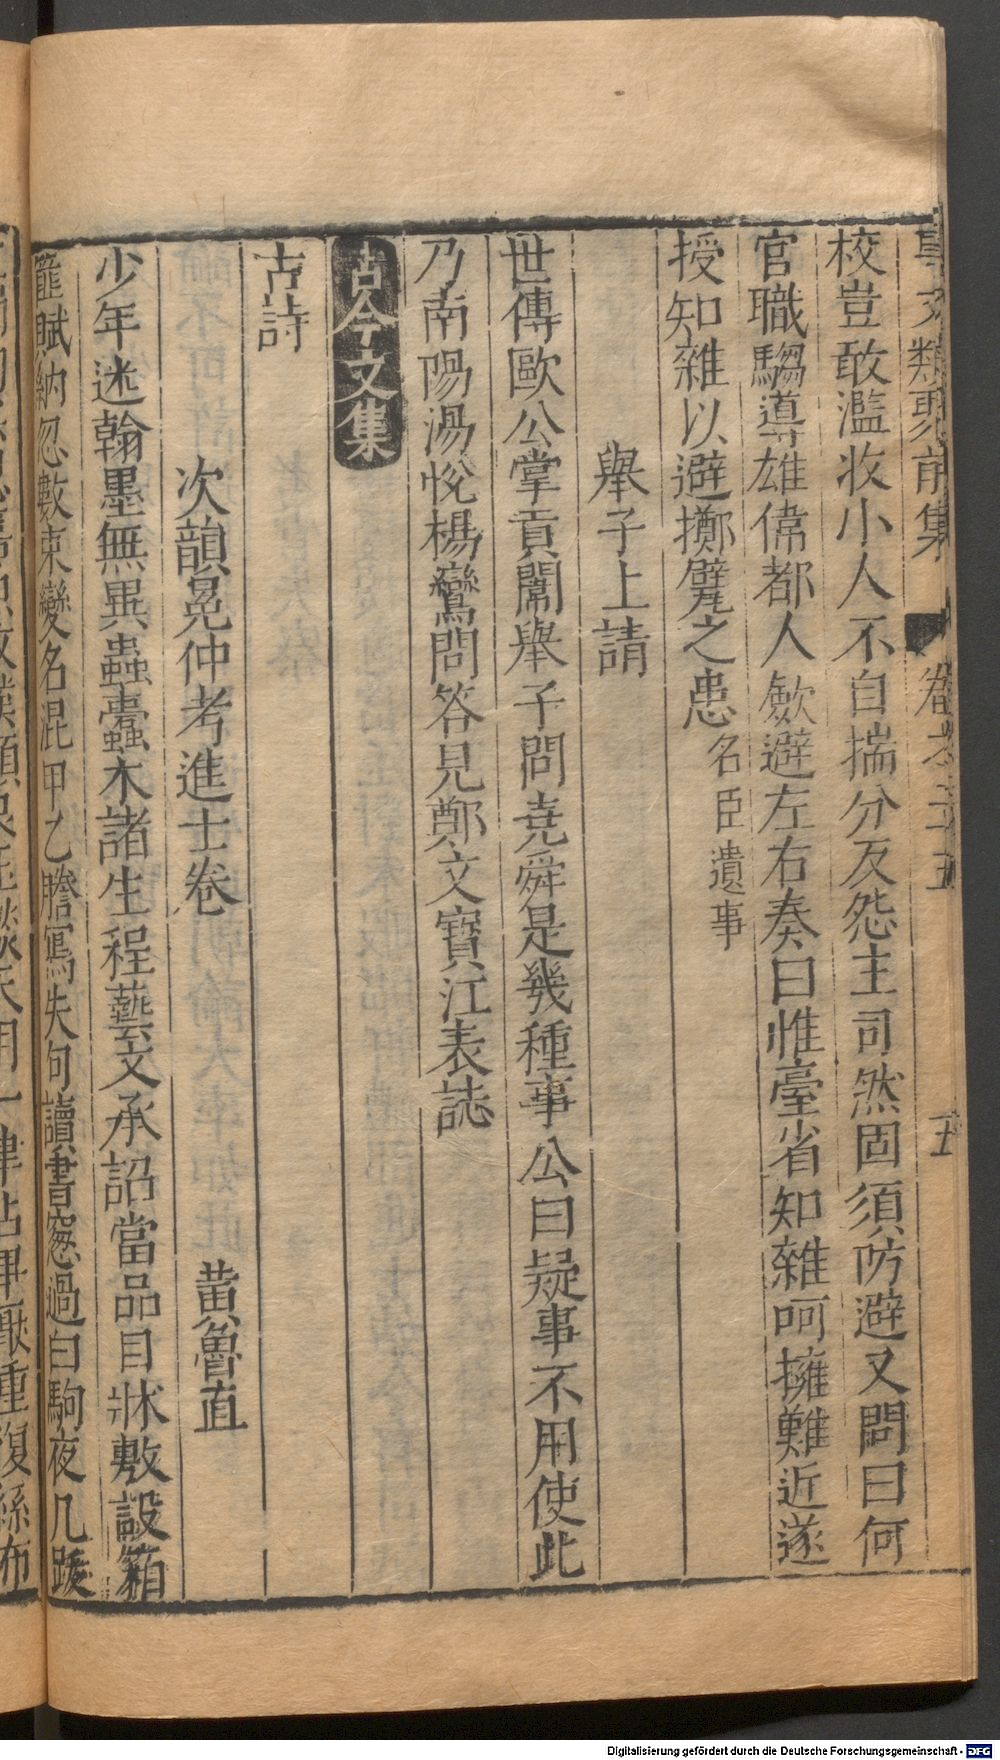 事文類聚前集 卷之二十五 五
校豈敢濫收小人不自揣分反怨主司然固須防避又問曰何
官職騶導雄偉都人歛避左右奏曰惟臺省知雜呵擁難近遂
授知雜以避擲甓之患名臣遺事
舉子上請
世傳歐公掌貢闈舉子問堯舜是幾種事公曰疑事不用使此
乃南陽湯悅楊鸞問答見鄭文寶江表誌
古今文集
古詩
次韻冕仲考進士卷 黃魯直
少年迷翰墨無異蟲蠹木諸生程藝文承詔當品目牀敷設箱
籠賦納忽數束變名混甲乙謄寫失句讀書窓過白駒夜几跋
Digitalisierung gefördert durch die Deutsche Forschungsgemeinschaft - DFG